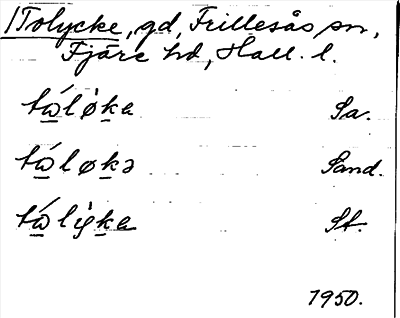 Tolycke, gd, Frillesås sn,
Fjäre hd, Hall. l.
tώlø̀ka Sa.
tώløkə Sand.
tώlẏka St.
1950.